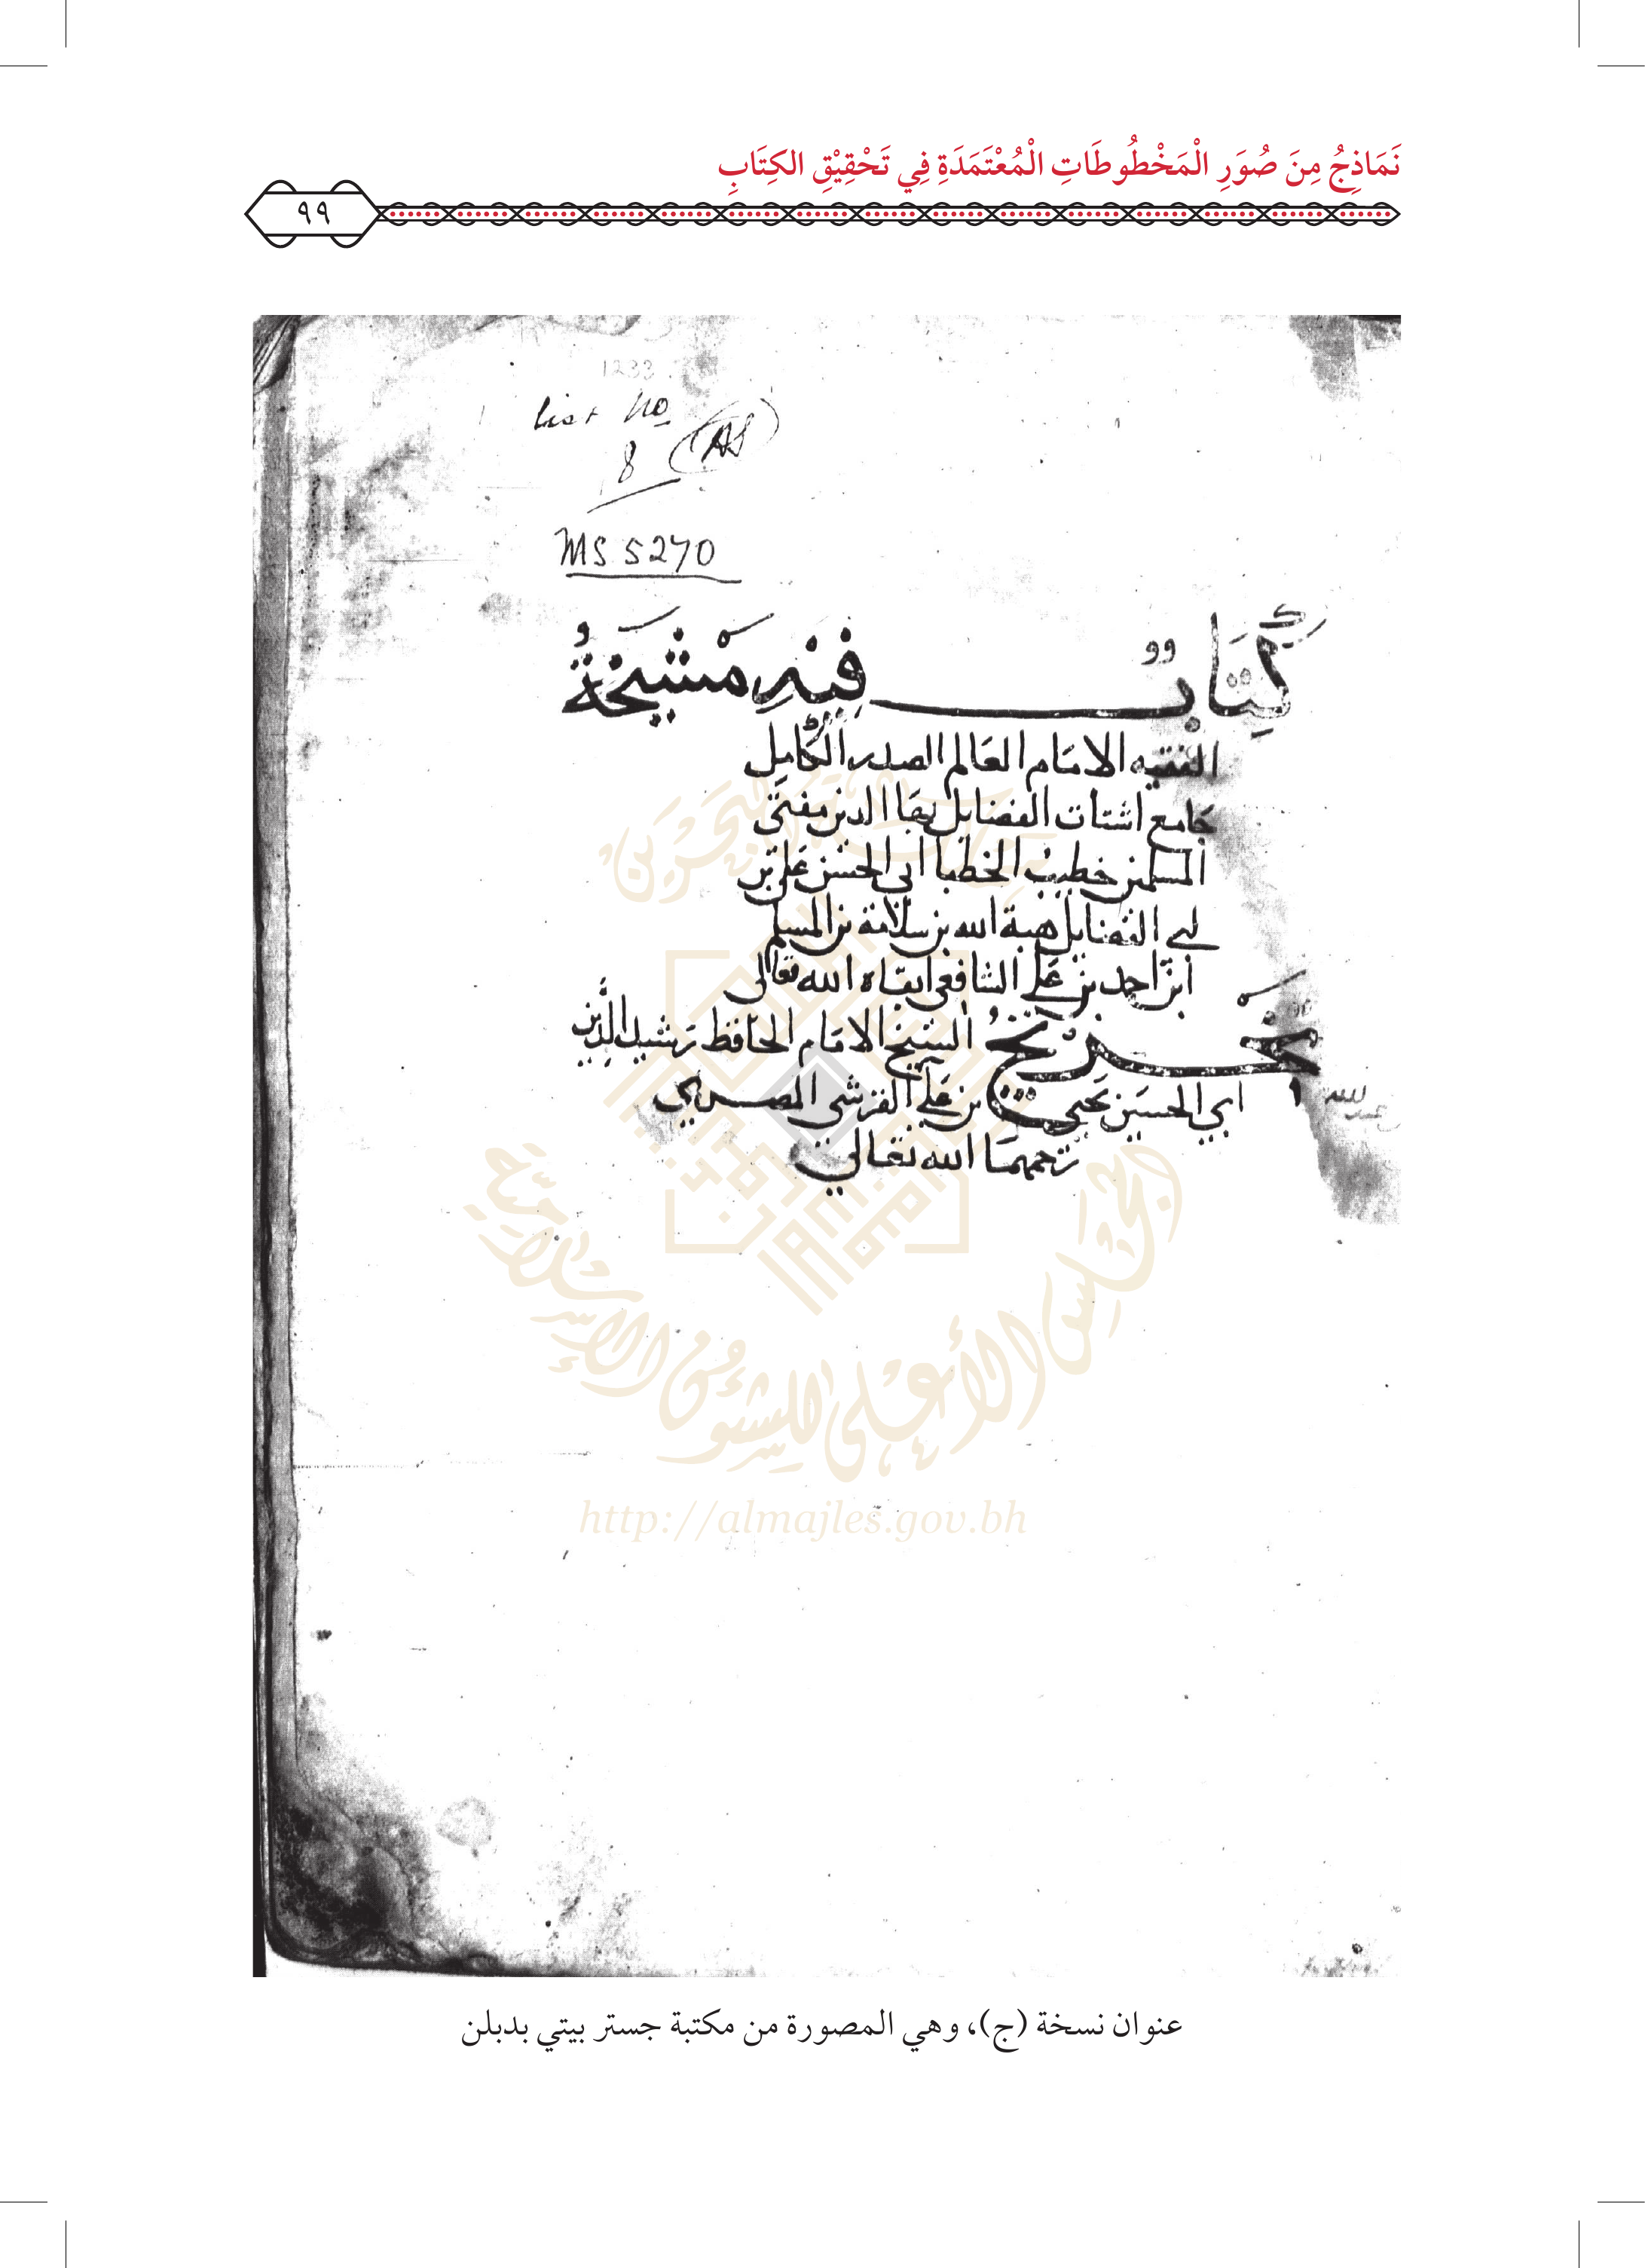 نَمَاذِجُ مِنَ صُوَرِ الْمَخْطُوطَاتِ الْمُعْتَمَدَةِ فِي تَحْقِيْقِ الكِتَابِ
٩٩
1233
List No
8 (AS)
MS 5270
كِتَابٌ فِيْهِ مَشْيَخَةُ
الفقيه الامَام العَالم الصدر الكَامِل
جَامع اشتات الفضايل بهَا الدين مفتى
المسلمين خطيب الخطبا ابى الحسَن عَلى بن
ابى الفضايل هبة الله بن سلامة بن المسلم
ابن احمد بن عَلى الشافعى ابقاه الله تعالى
تخريجُ الشيخ الامَام الحَافظ رَشيد الدين
ابي الحسَين يَحيى بن عَلي القرشى المصرى
رَحمهمَا الله تعَالي
المجلس الأعلى للشؤون الإسلامية
http://almajles.gov.bh
عنوان نسخة (ج)، وهي المصورة من مكتبة جستر بيتي بدبلن